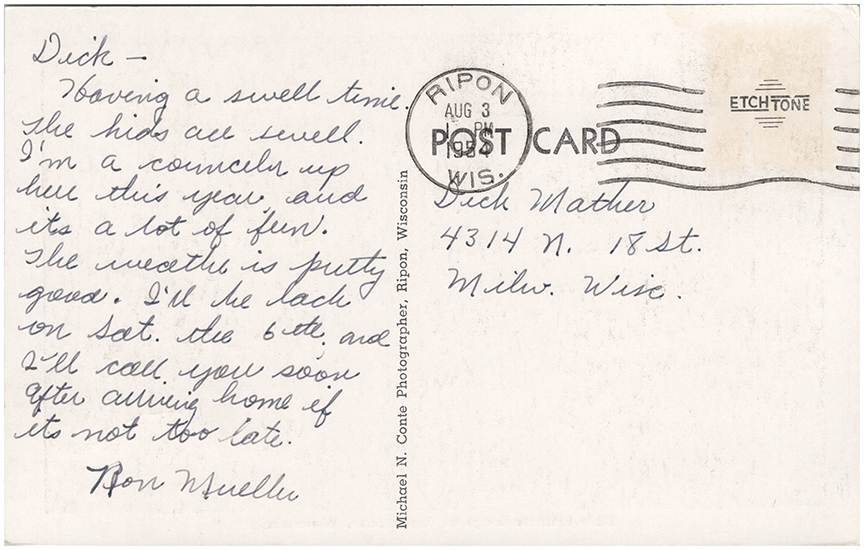 Dick –
Having a swell time.
The kids are swell.
I'm a counceler up
here this year and
its a lot of fun.
The weather is pretty
good. I'll be back
on Sat. the 6th and
I'll call you soon
after arriving home if
its not too late.
Ron Mueller
Michael N. Conte Photographer, Ripon, Wisconsin
RIPON
AUG 3
PM
1954
WIS.
POST CARD
ETCHTONE
Dick Mather
4314 N. 18 St.
Milw. Wisc.